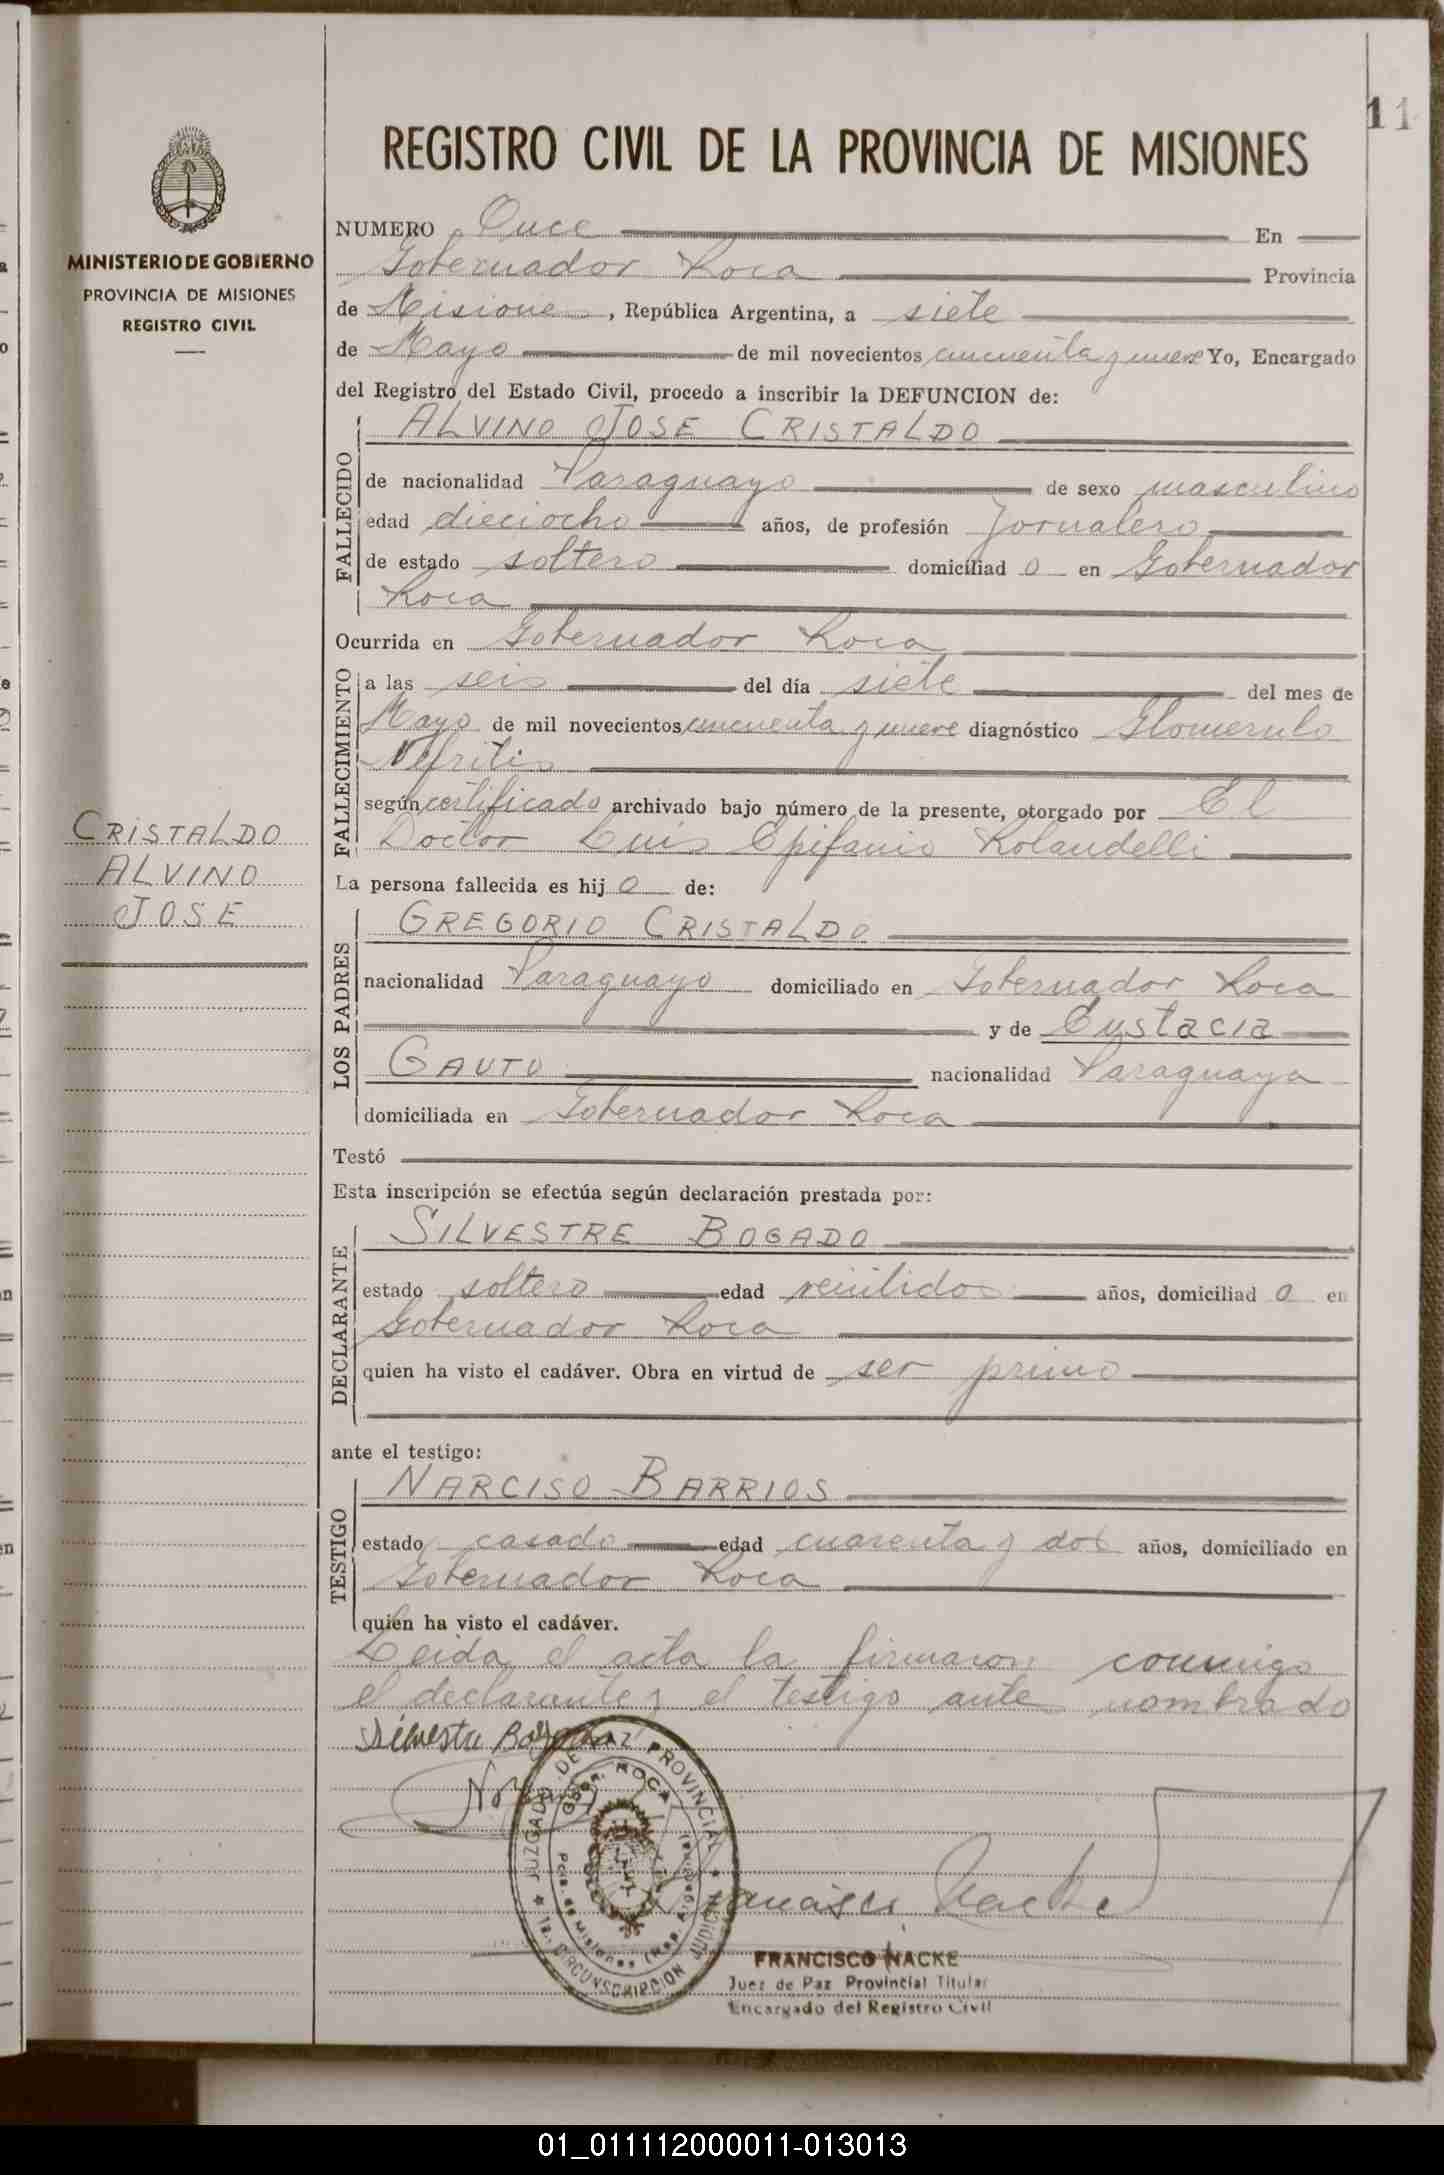 11
REGISTRO CIVIL DE LA PROVINCIA DE MISIONES
MINISTERIO DE GOBIERNO
PROVINCIA DE MISIONES
REGISTRO CIVIL
CRISTALDO
ALVINO
JOSE
NUMERO Once En
Gobernador Roca Provincia
de Misiones, República Argentina, a siete
de Mayo de mil novecientos cincuenta y nueve Yo, Encargado
del Registro del Estado Civil, procedo a inscribir la DEFUNCION de:
FALLECIDO
ALVINO JOSE CRISTALDO
de nacionalidad Paraguayo de sexo masculino
edad dieciocho años, de profesión Jornalero
de estado soltero domiciliad o en Gobernador
Roca
Ocurrida en Gobernador Roca
FALLECIMIENTO
a las seis del día siete del mes de
Mayo de mil novecientos cincuenta y nueve diagnóstico Glomerulo
Nefritis
según certificado archivado bajo número de la presente, otorgado por El
Doctor Luis Epifanio Rolandelli
La persona fallecida es hij o de:
LOS PADRES
GREGORIO CRISTALDO
nacionalidad Paraguayo domiciliado en Gobernador Roca
y de Eustacia
GAUTO nacionalidad Paraguaya
domiciliada en Gobernador Roca
Testó
Esta inscripción se efectúa según declaración prestada por:
DECLARANTE
SILVESTRE BOGADO
estado soltero edad veintidos años, domiciliad o en
Gobernador Roca
quien ha visto el cadáver. Obra en virtud de ser primo
ante el testigo:
TESTIGO
NARCISO BARRIOS
estado casado edad cuarenta y dos años, domiciliado en
Gobernador Roca
quien ha visto el cadáver.
Leida el acta la firmaron conmigo
el declarante y el testigo ante nombrado
Silvestre Bogado
JUZGADO DE PAZ PROVINCIAL
Gdor. ROCA
Pcia. de Misiones (Rep. Argentina)
1a. CIRCUNSCRIPCION JUDICIAL
Francisco Nacke
FRANCISCO NACKE
Juez de Paz Provincial Titular
Encargado del Registro Civil
01_011112000011-013013